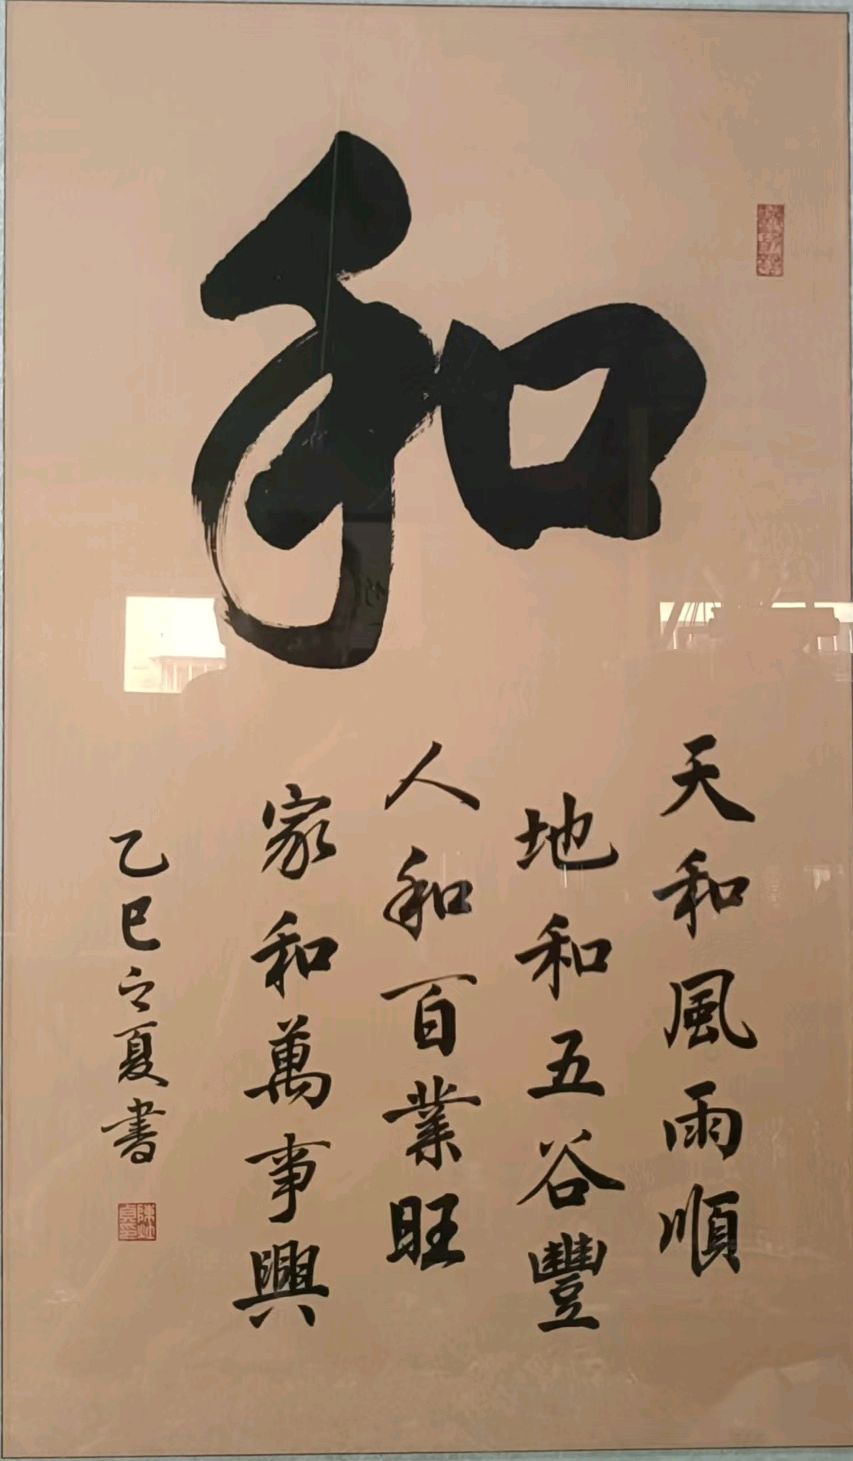 和
天和風雨順
地和五谷豐
人和百業旺
家和萬事興
乙巳之夏書